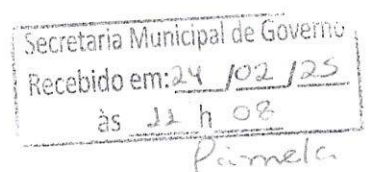 Secretaria Municipal de Governo
Recebido em: 24 / 02 / 25
às 11 h 08
Pâmela